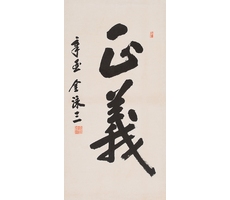 正義
辛亥 金泳三